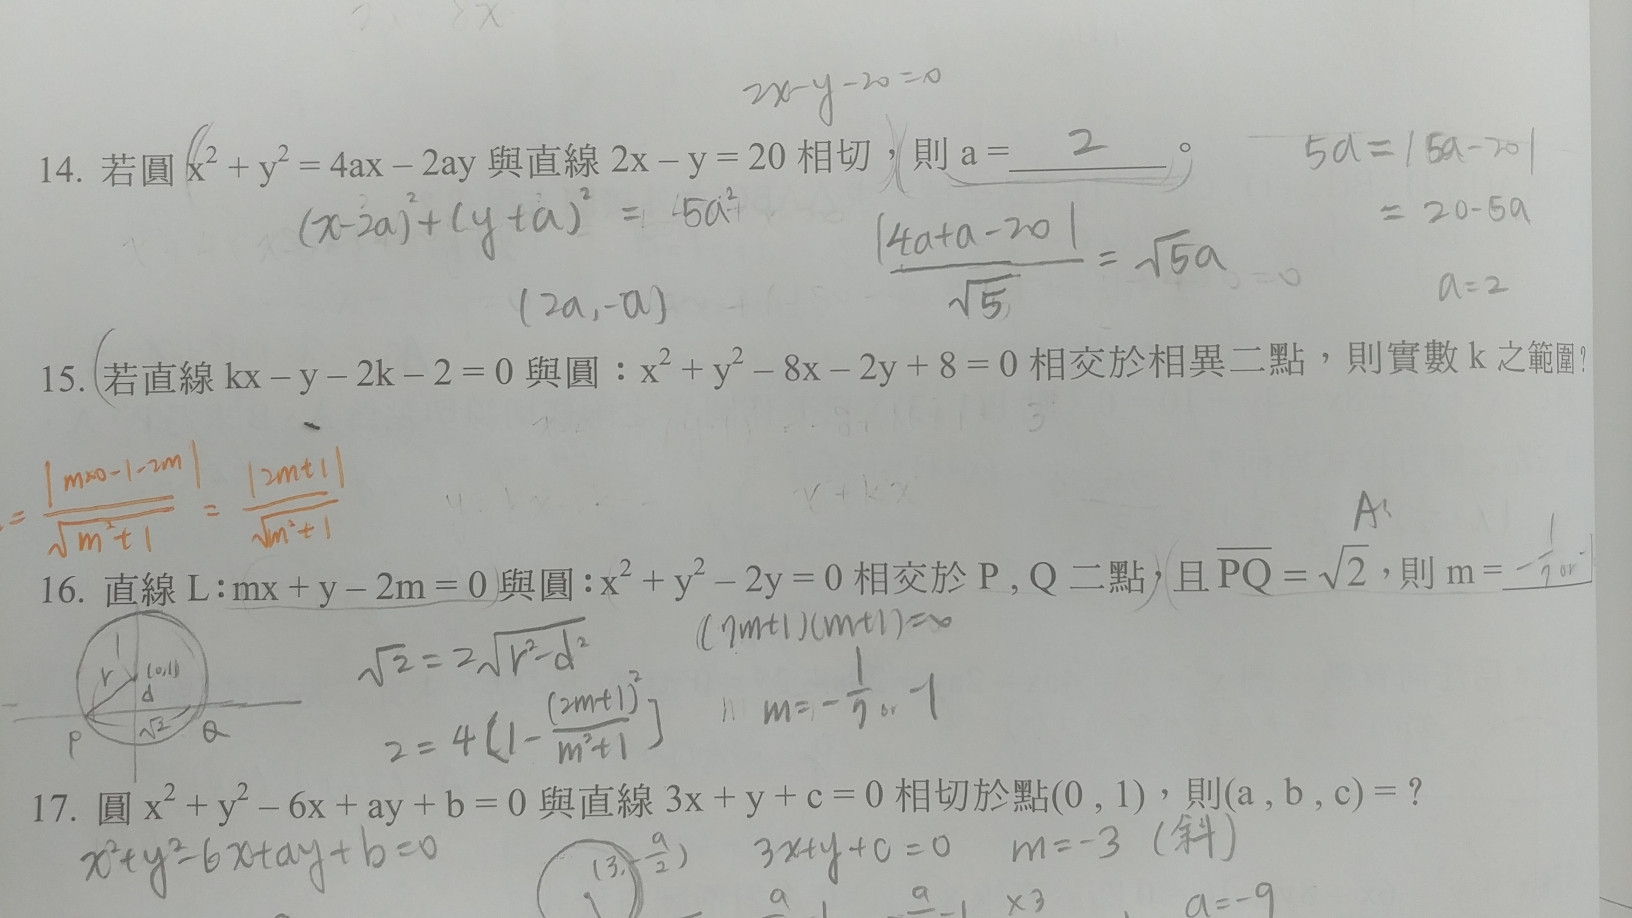 2x-y-20=0
14. 若圓 x² + y² = 4ax – 2ay 與直線 2x – y = 20 相切，則 a = 2 。
5a=|5a-20|
=20-5a
a=2
(x-2a)²+(y+a)² = 5a²
|4a+a-20|/√5 = √5a
(2a,-a)
15. 若直線 kx – y – 2k – 2 = 0 與圓：x² + y² – 8x – 2y + 8 = 0 相交於相異二點，則實數 k 之範圍?
= |m×0-1-2m|/√m²+1 = |2m+1|/√m²+1
A:
16. 直線 L：mx + y – 2m = 0 與圓：x² + y² – 2y = 0 相交於 P , Q 二點，且 PQ = √2，則 m = -1/7 or -1
r (0,1)
d
√2
P Q
√2=2√r²-d²
2=4[1-(2m+1)²/m²+1]
(7m+1)(m+1)=0
m=-1/7 or -1
17. 圓 x² + y² – 6x + ay + b = 0 與直線 3x + y + c = 0 相切於點(0 , 1)，則(a , b , c) = ?
x²+y²-6x+ay+b=0
(3,-a/2)
3x+y+c=0 m=-3 (斜)
×3 a=-9